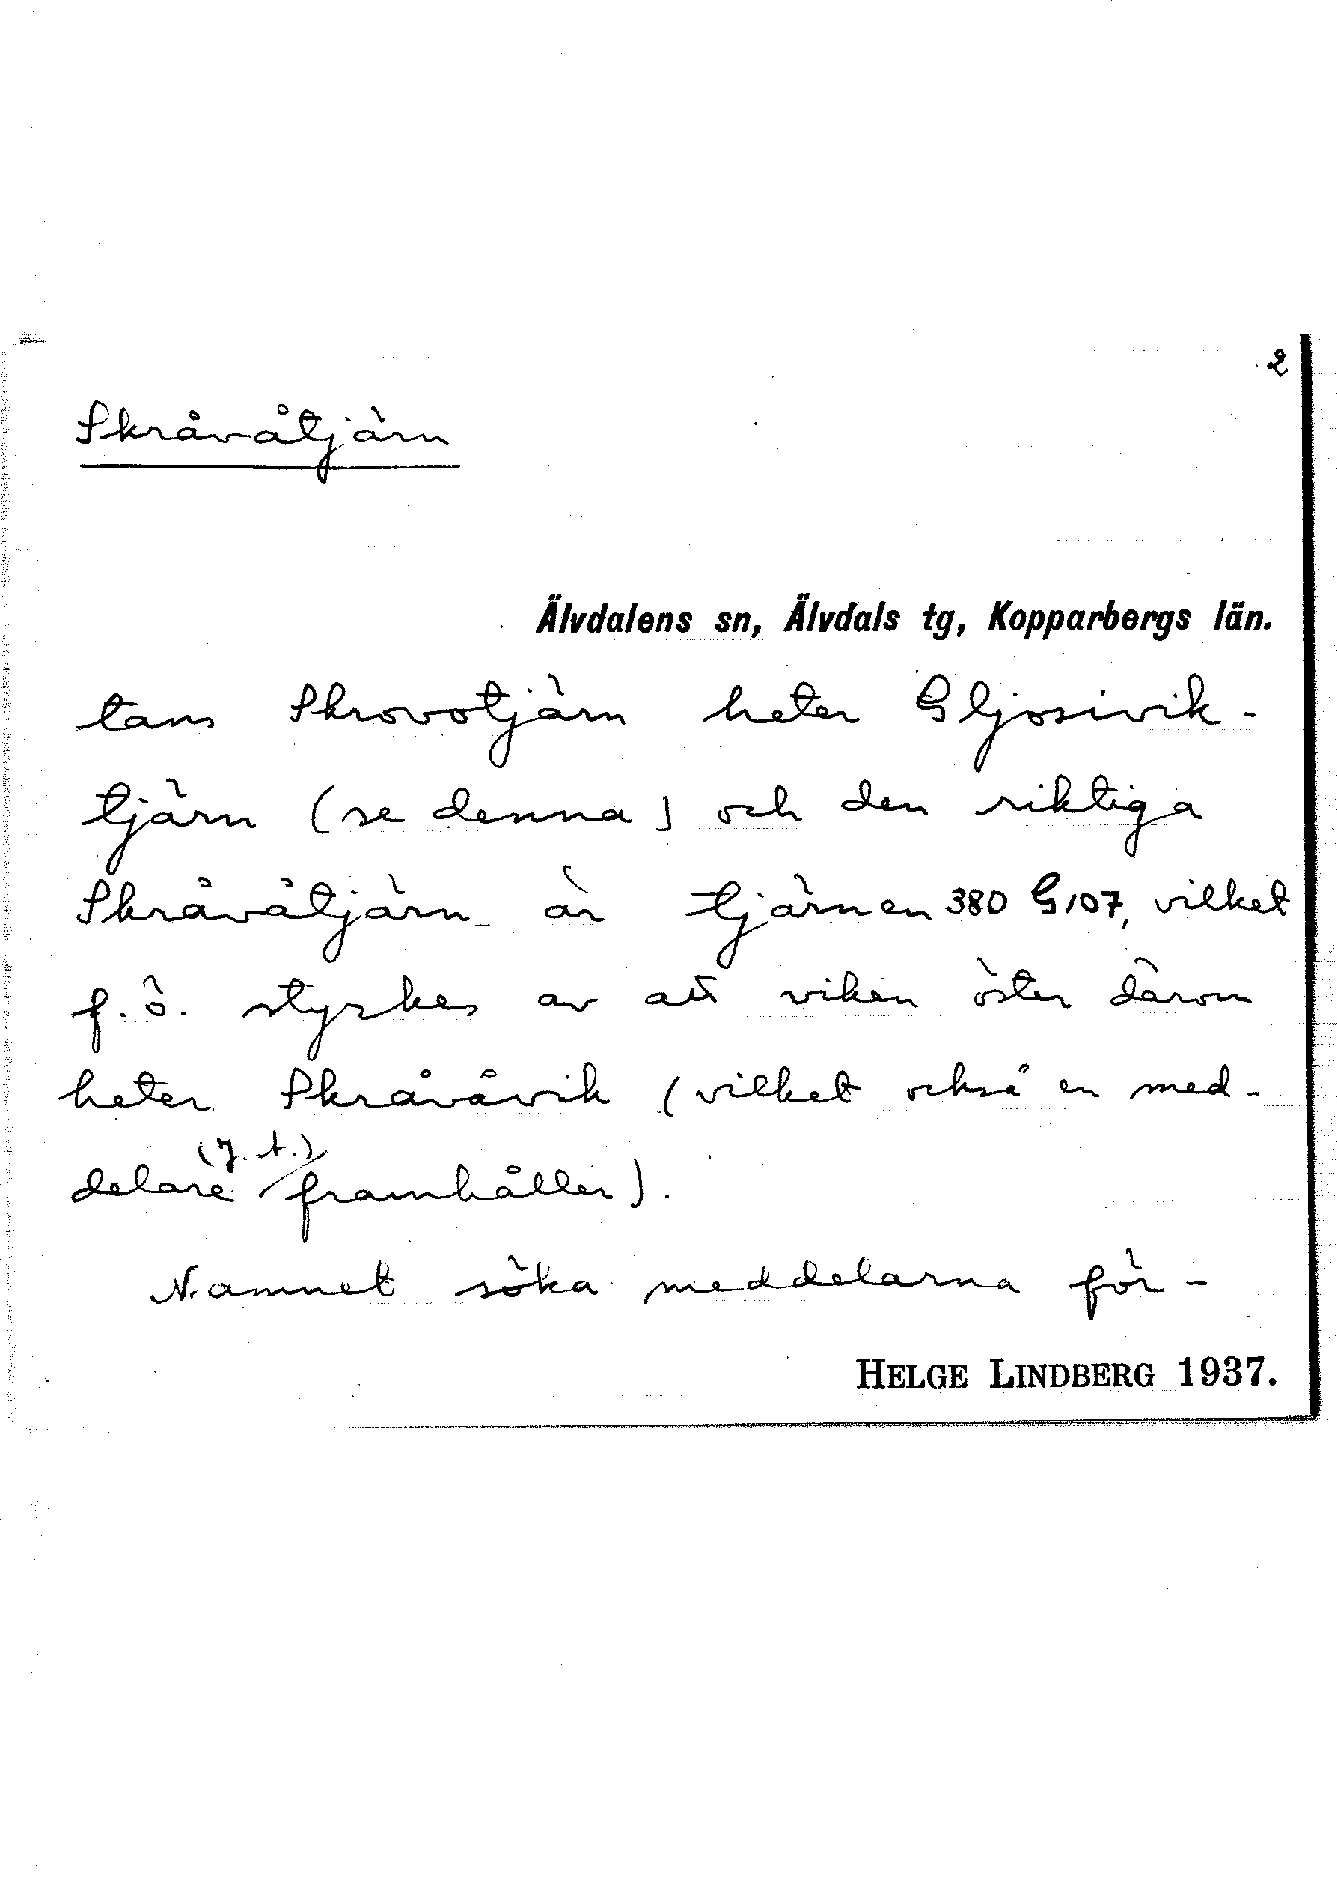 2
Skråvåtjärn
Älvdalens sn, Älvdals tg, Kopparbergs län.
tans Skrovotjärn heter Gljosivik-
tjärn (se denna) och den riktiga
Skråvåtjärn är tjärnen 380 G 107, vilket
f.ö. styrkes av att viken öster därom
heter Skråvåvik (vilket också en med-
(J. A.)
delare framhåller).
Namnet söka meddelarna för-
HELGE LINDBERG 1937.